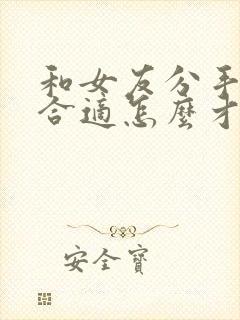 和女友分手
合適怎麼才
安全寶